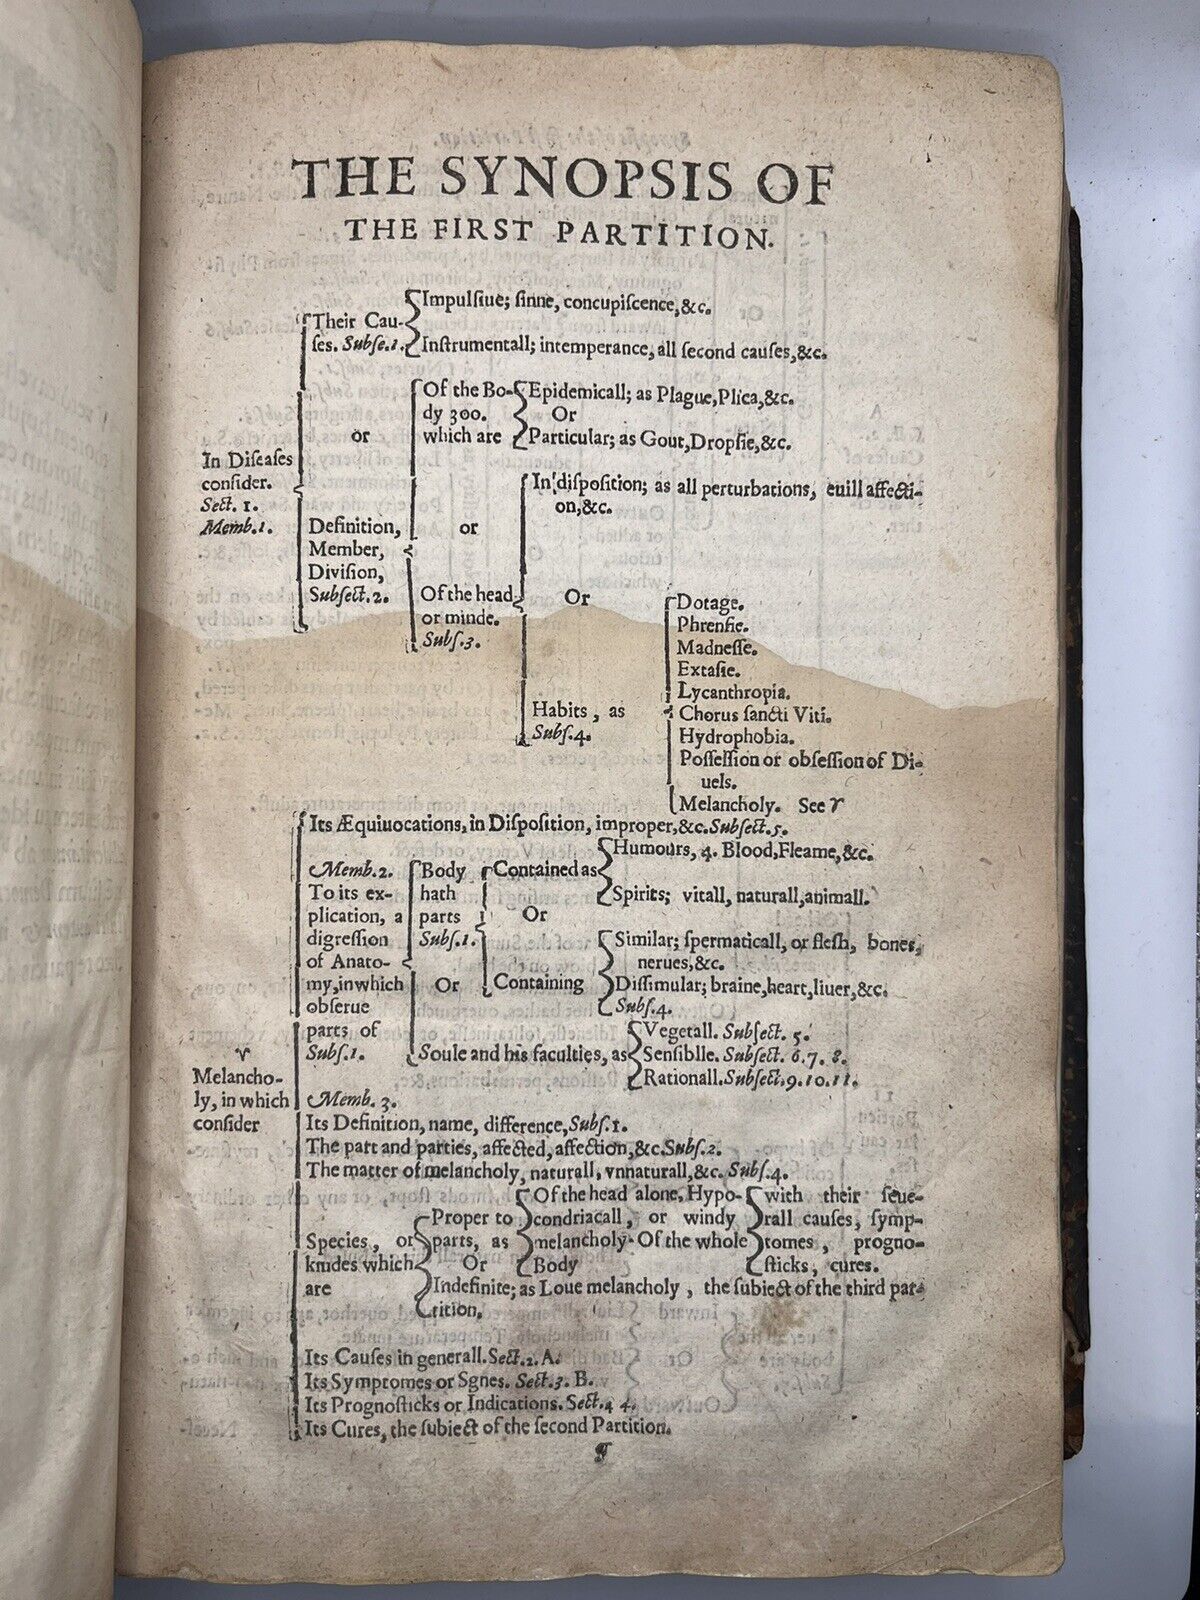 THE SYNOPSIS OF
THE FIRST PARTITION.
Impulſiue; ſinne, concupiſcence, &c.
Their Cau-
ſes. Subſe.1.
Inſtrumentall; intemperance, all ſecond cauſes, &c.
or
Of the Bo-
dy 300.
which are
Epidemicall; as Plague, Plica, &c.
Or
Particular; as Gout, Dropſie, &c.
In Diſeaſes
conſider.
Sect. 1.
Memb.1.
Definition,
Member,
Diviſion,
Subſect.2.
or
In diſpoſition; as all perturbations, euill affecti-
on, &c.
Of the head
or minde.
Subſ.3.
Or
Habits, as
Subſ.4.
Dotage.
Phrenſie.
Madneſſe.
Extaſie.
Lycanthropia.
Chorus ſancti Viti.
Hydrophobia.
Poſſeſſion or obſeſſion of Di-
uels.
Melancholy. See ♈
Its Æquiuocations, in Diſpoſition, improper, &c. Subſect.5.
Memb.2.
To its ex-
plication, a
digreſſion
of Anato-
my, in which
obſerue
parts of
Subſ.1.
Body
hath
parts
Subſ.1.
Contained as
Humours, 4. Blood, Fleame, &c.
Spirits; vitall, naturall, animall.
Or
Containing
Similar; ſpermaticall, or fleſh, bones,
nerues, &c.
Diſſimular; braine, heart, liuer, &c.
Subſ.4.
Or
Soule and his faculties, as
Vegetall. Subſect. 5.
Senſiblle. Subſect. 6.7. 8.
Rationall. Subſect.9.10.11.
♈
Melancho-
ly, in which
conſider
Memb. 3.
Its Definition, name, difference, Subſ.1.
The part and parties, affected, affection, &c. Subſ.2.
The matter of melancholy, naturall, vnnaturall, &c. Subſ.4.
Species, or
kindes which
are
Proper to
parts, as
Of the head alone, Hypo-
condriacall, or windy
melancholy. Of the whole
Body
with their ſeue-
rall cauſes, ſymp-
tomes, progno-
ſticks, cures.
Or
Indefinite; as Loue melancholy, the ſubiect of the third par-
tition.
Its Cauſes in generall. Sect.2. A.
Its Symptomes or Sgnes. Sect.3. B.
Its Prognoſticks or Indications. Sect.4 4.
Its Cures, the ſubiect of the ſecond Partition.
¶